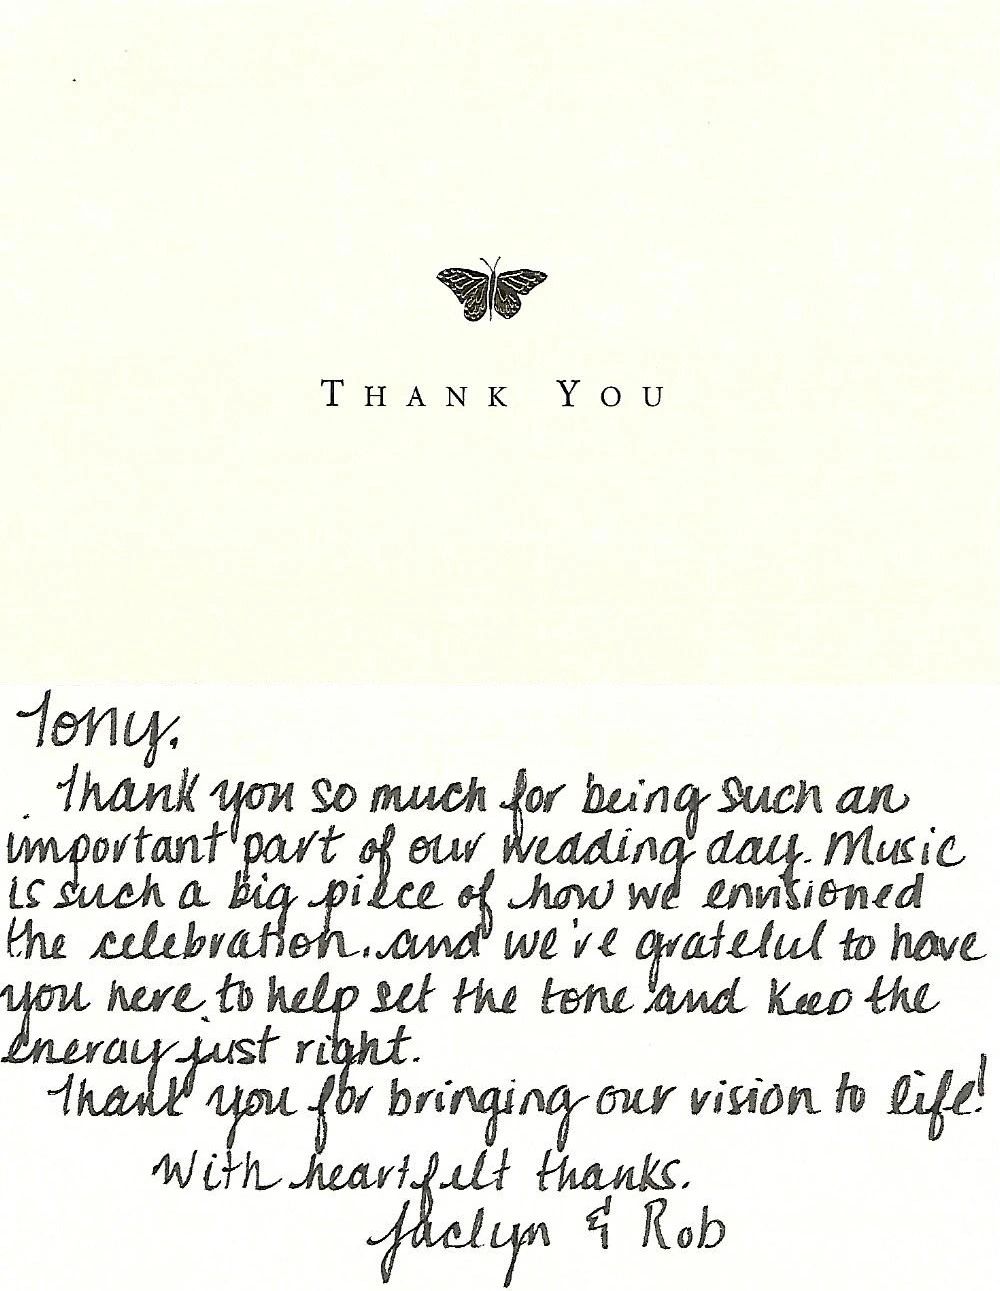 THANK YOU
Tony,
Thank you so much for being such an
important part of our wedding day. Music
is such a big piece of how we envisioned
the celebration, and we're grateful to have
you here to help set the tone and keep the
energy just right.
Thank you for bringing our vision to life!
With heartfelt thanks,
Jaclyn & Rob